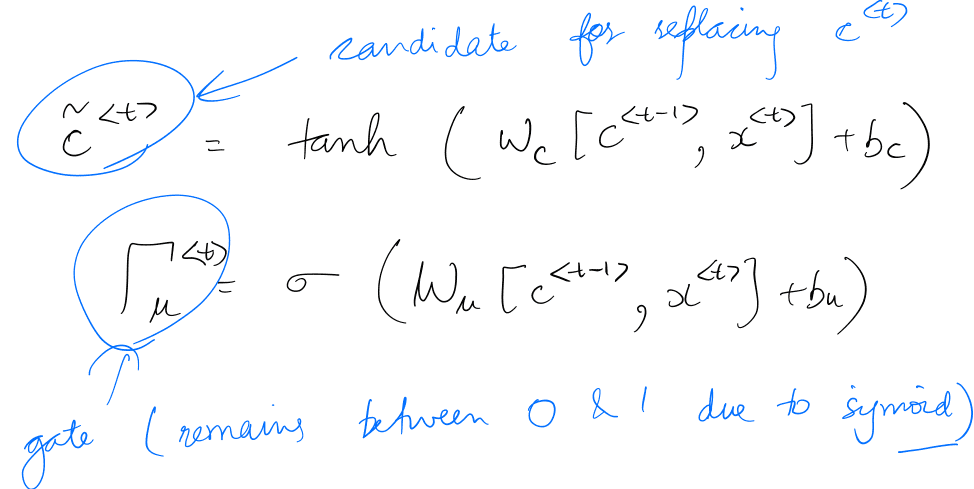 candidate for replacing c<t>
c̃<t> = tanh ( Wc [ c<t-1> , x<t> ] + bc )
Γu<t> = σ ( Wu [ c<t-1> , x<t> ] + bu )
gate ( remains between 0 & 1 due to sigmoid )